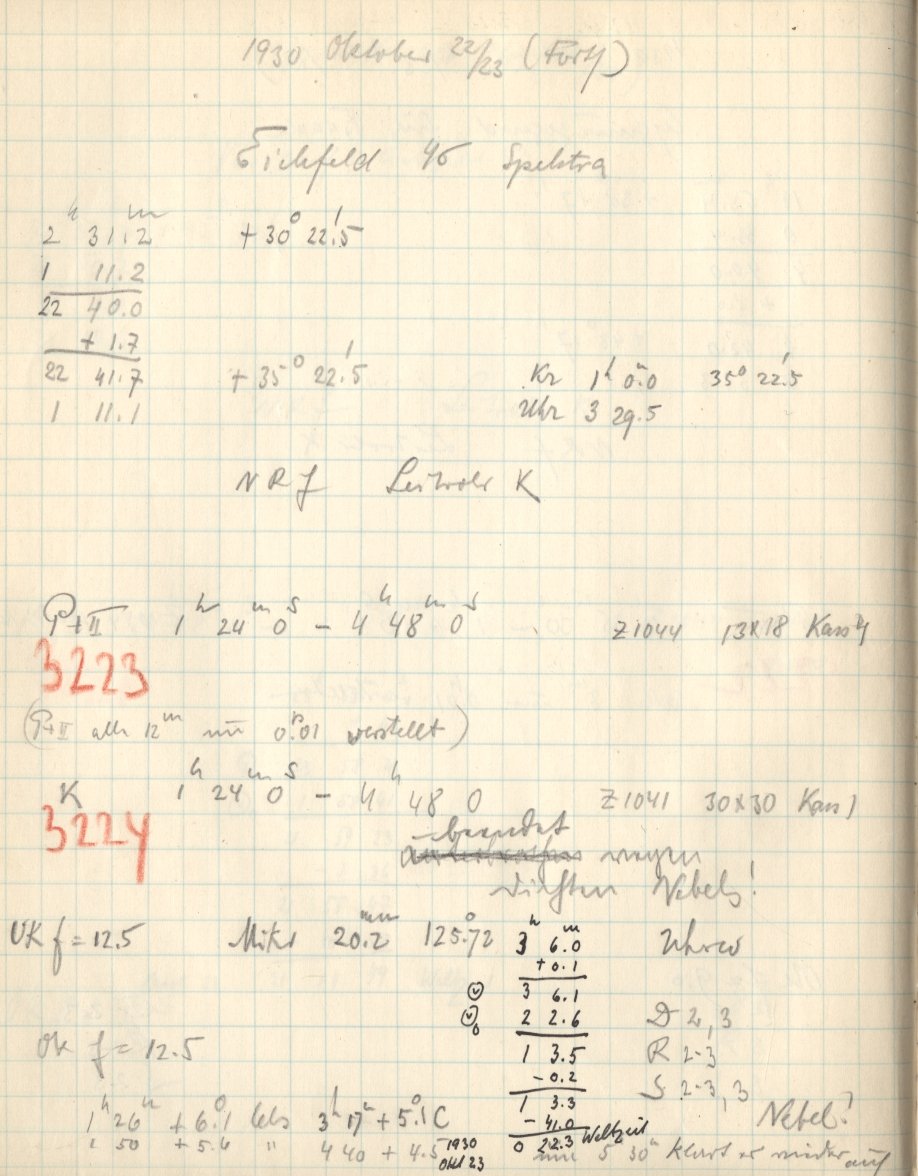 1930 Oktober 22/23 (Forts)
Eichfeld 45 Spektra
2ʰ 31.2ᵐ +30° 22.'5
1 11.2
22 40.0
+ 1.7
22 41.7 +35° 22.'5 Kr 1ʰ 0.ᵐ0 35° 22.'5
1 11.1 Uhr 3 29.5
NRf Leitrohr K
P+II 1ʰ 24ᵐ 0ˢ – 4ʰ 48ᵐ 0ˢ Z1044 13x18 Kass 4
3223
(P+II alle 12ᵐ um 0.ᴿ01 verstellt)
K 1ʰ 24ᵐ 0ˢ – 4ʰ 48 0 Z1041 30x30 Kass 1
3224
beendet
wegen
dichten Nebels!
VK f = 12.5 Mikr 20.2ᵐᵐ 125.°72 3ʰ 6.0ᵐ
+0.1
3 6.1
2 2.6 D 2,3
OK f = 12.5 1 3.5 R 2-3
-0.2 S 2-3,3
1 3.3
1ʰ 26ᵐ +6.°1 Cels 3ʰ 17ᵐ +5.°1 C -41.0 Nebel!
1 50 +5.6 " 4 40 +4.5 1930 Okt 23 0 22.3 Weltzeit
um 5 30ᵐ klart es wieder auf